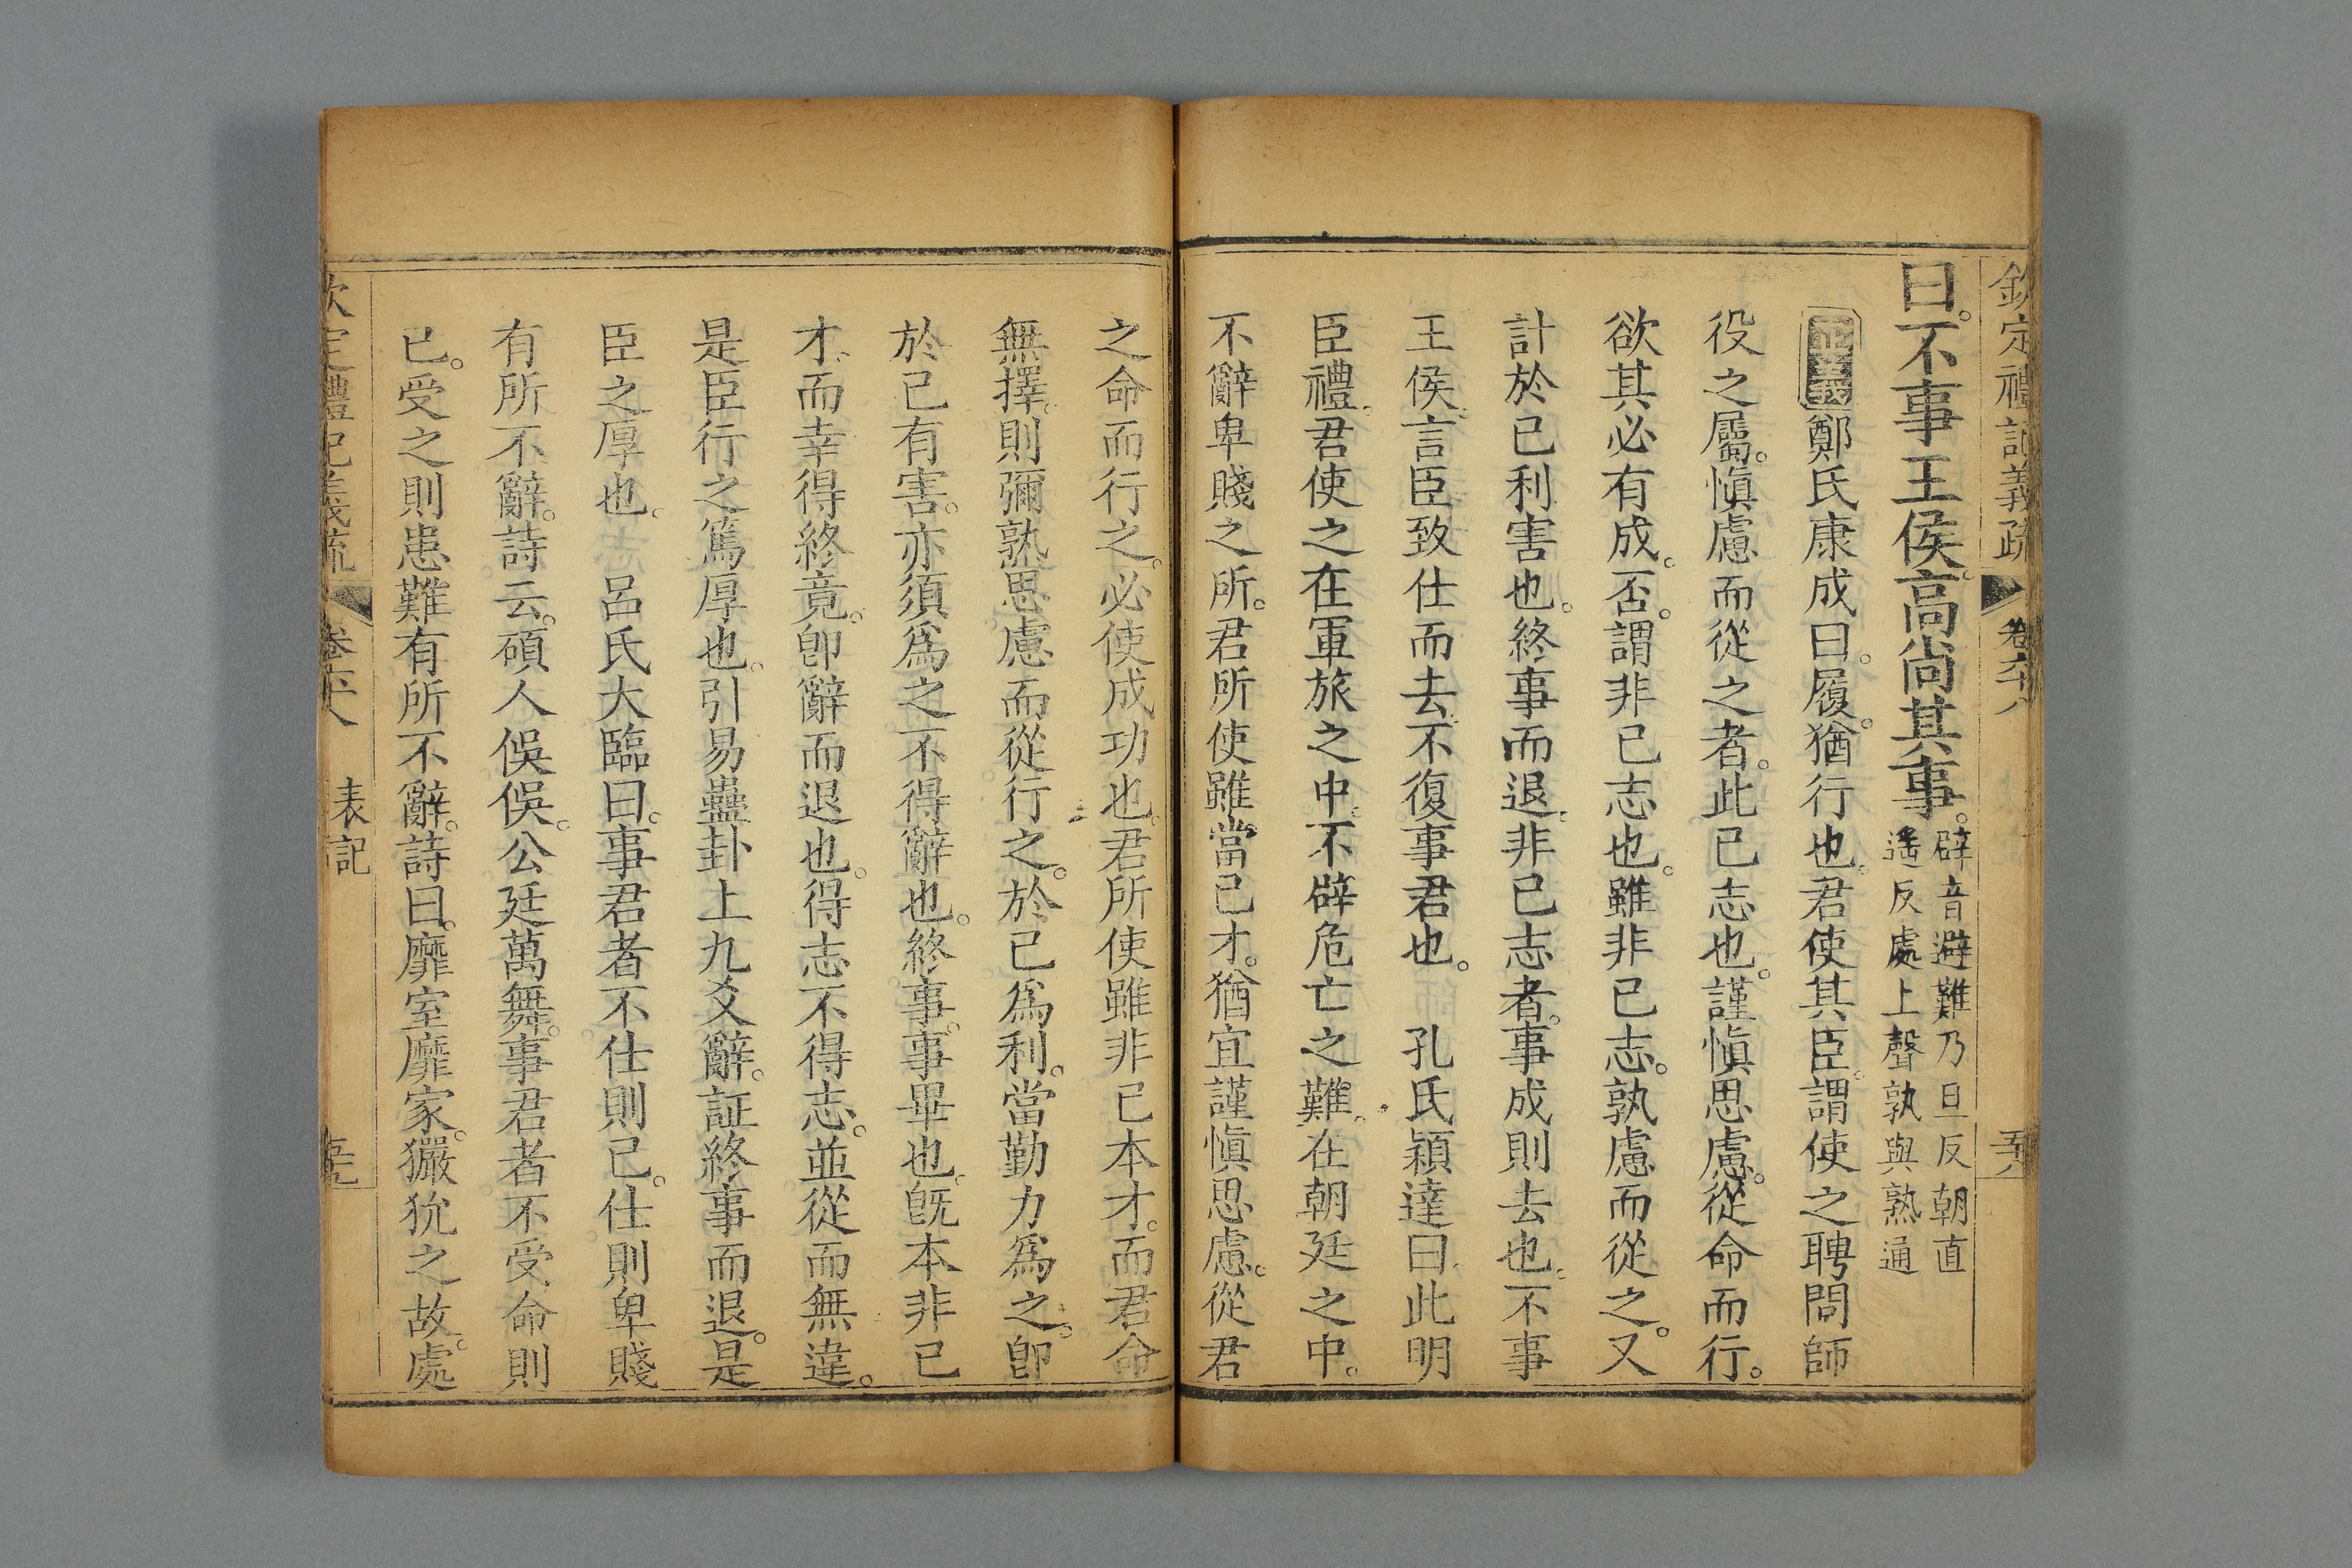 欽定禮記義疏 卷六十八
曰。不事王侯。高尚其事。辟音避難乃旦反朝直
遙反處上聲孰與熟通
正義鄭氏康成曰。履。猶行也。君使其臣。謂使之聘問師
役之屬。愼慮而從之者。此己志也。謹愼思慮。從命而行。
欲其必有成。否。謂非己志也。雖非己志。孰慮而從之。又
計於己利害也。終事而退。非己志者。事成則去也。不事
王侯。言臣致仕而去。不復事君也。 孔氏穎達曰。此明
臣禮。君使之在軍旅之中。不辟危亡之難。在朝廷之中。
不辭卑賤之所。君所使雖當己才。猶宜謹愼思慮。從君
之命而行之。必使成功也。君所使雖非己本才。而君命
無擇。則彌熟思慮而從行之。於己爲利。當勤力爲之。卽
於己有害。亦須爲之。不得辭也。終事。事畢也。旣本非己
才。而幸得終竟。卽辭而退也。得志不得志。並從而無違。
是臣行之篤厚也。引易蠱卦上九爻辭。証終事而退。是
臣之厚也。 呂氏大臨曰。事君者不仕則已。仕則卑賤
有所不辭。詩云。碩人俁俁。公廷萬舞。事君者不受命則
已。受之則患難有所不辭。詩曰。靡室靡家。玁狁之故。處
欽定禮記義疏 卷六十八 表記